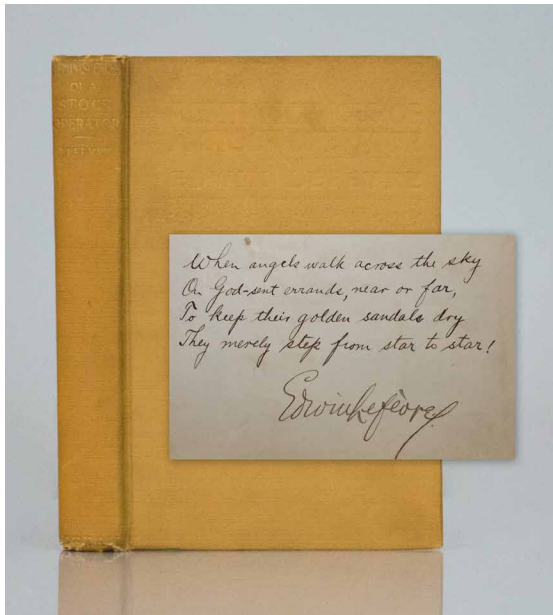 OF A
STOCK
OPERATOR
When angels walk across the sky
On God-sent errands, near or far,
To keep their golden sandals dry
They merely step from star to star!
Edwin Lefèvre